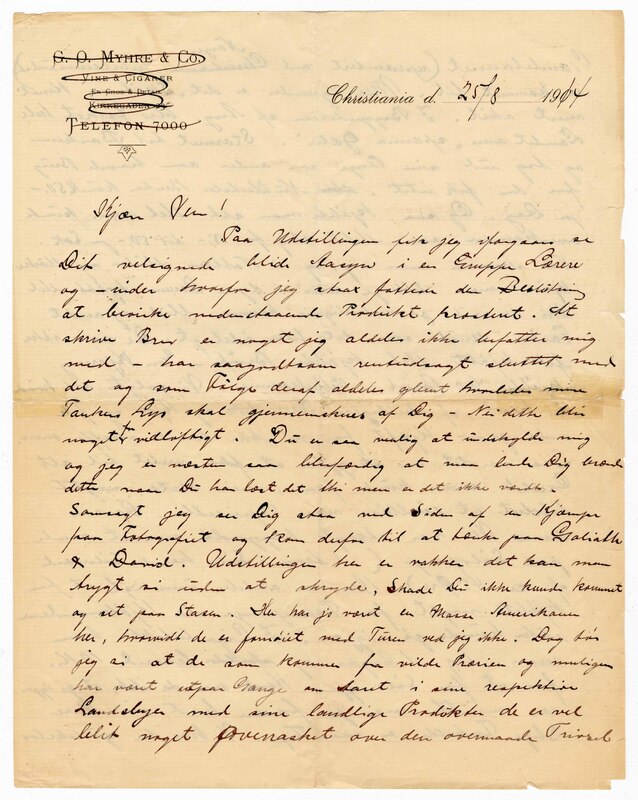 G. O. Myhre & Co.
Vine & Cigarer
En Gros & Detail
Kirkegaden
Telefon 7000
Christiania d. 25/8 1914
Kjære Ven!
Paa Udstillingen fik jeg iforgaars se
Dit velsignede blide Aasyn i en Gruppe Lærere
og – under hvorfor jeg strax fattede den Beslutning
at bevirke nedenstaaende Produkt prostent. At
skrive Brev er noget jeg aldeles ikke befatter mig
med – har saagodtsom rentudsagt sluttet med
det og som Følge deraf aldeles glemt hvorledes mine
Tankers Lys skal gjennemskues af Dig – Nei dette blir
noget vidløftigt. Du er saa venlig at undskylde mig
og jeg er næsten saa ubefærdig at man bede Dig brænde
dette naar Du har læst det thi mere er det ikke værdt.
Somsagt jeg ser Dig staa ved Siden af en Kjæmpe
paa Fotografiet og kom derfor til at tænke paa Goliath
& David. Udstillingen her er vakker det kan man
trygt si uden at skryde, Skade Du ikke kunde kommet
og set paa Stasen. Her har jo været en Masse Amerikanere
her, hvorvidt de er fornøiet med Turen ved jeg ikke. Dog bør
jeg si at de som kommer fra vilde Prærien og muligens
har været etpar Gange om Aaret i sine respektive
Landsbyer med sine landlige Produkter de er vel
lidt noget overrasket over den overmaade Trivsel